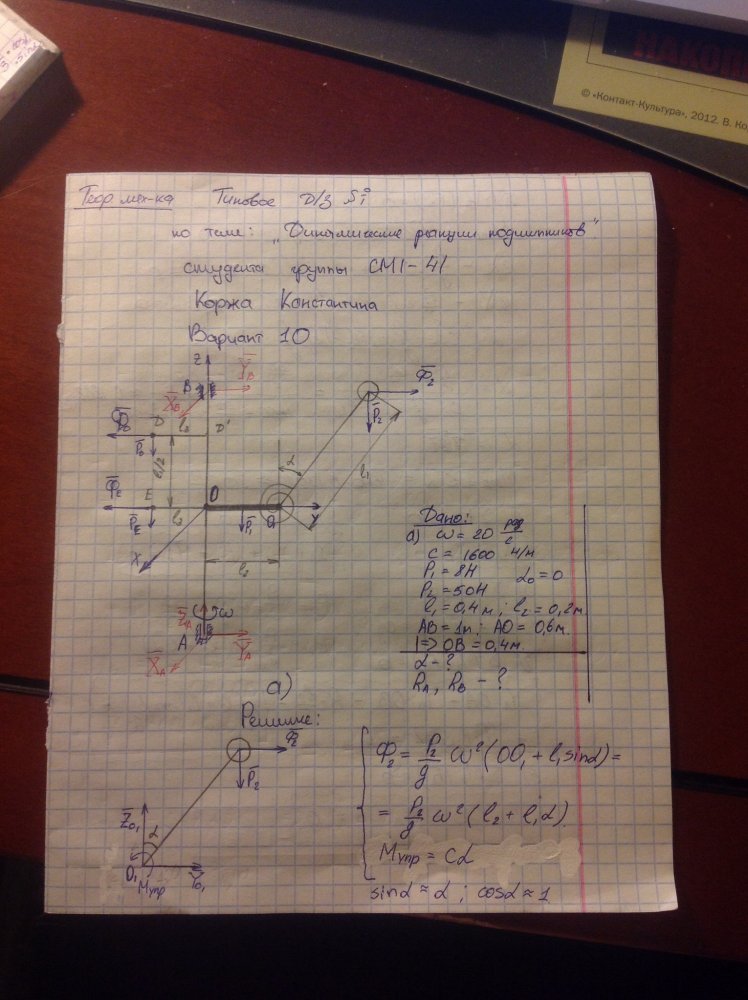 НАКОП
© «Контакт-Культура», 2012. В. Ко
Теор мех-ка Типовое D/З №1
по теме: „Динамические реакции подшипников"
студента группы СМ1-41
Коржа Константина
Вариант 10
Z
B
Y̅B
X̅B
l₂
D
D'
Φ̅D
P̅D
l₁/2
Φ̅2
P̅2
α
l₁
Φ̅E
E
P̅E
l₂
O
P̅1
O₁
Y
X
l₂
Z̅A
ω
A
Y̅A
X̅A
а)
Дано:
а) ω = 20 рад/с
c = 1600 Н/м
P₁ = 8Н α₀ = 0
P₂ = 50Н
l₁ = 0,4 м; l₂ = 0,2 м.
AB = 1м; AO = 0,6м.
1 => OB = 0,4м.
α - ?
RA, RB - ?
Решение:
Φ̅2
P̅2
Z̅O₁
α
O₁
Mупр
Y̅O₁
Φ₂ = P₂/g ω²(OO₁ + l₁sinα) =
= P₂/g ω²(l₂ + l₁α)
Mупр = cα
sinα ≈ α; cosα ≈ 1